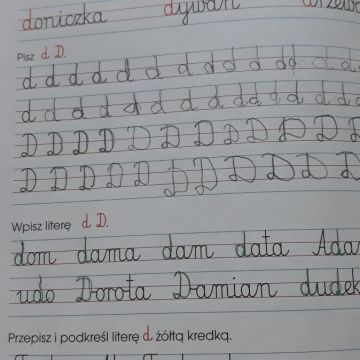 doniczka dywan
Pisz d D.
d d d d d d d d d d d d d d
d d d d d d d d d d d d d d d
D D D D D D D D D D D D D
D D D D D D D D D D D D
Wpisz literę d D.
dom dama dam data Ada
udo Dorota Damian dudek
Przepisz i podkreśl literę d żółtą kredką.